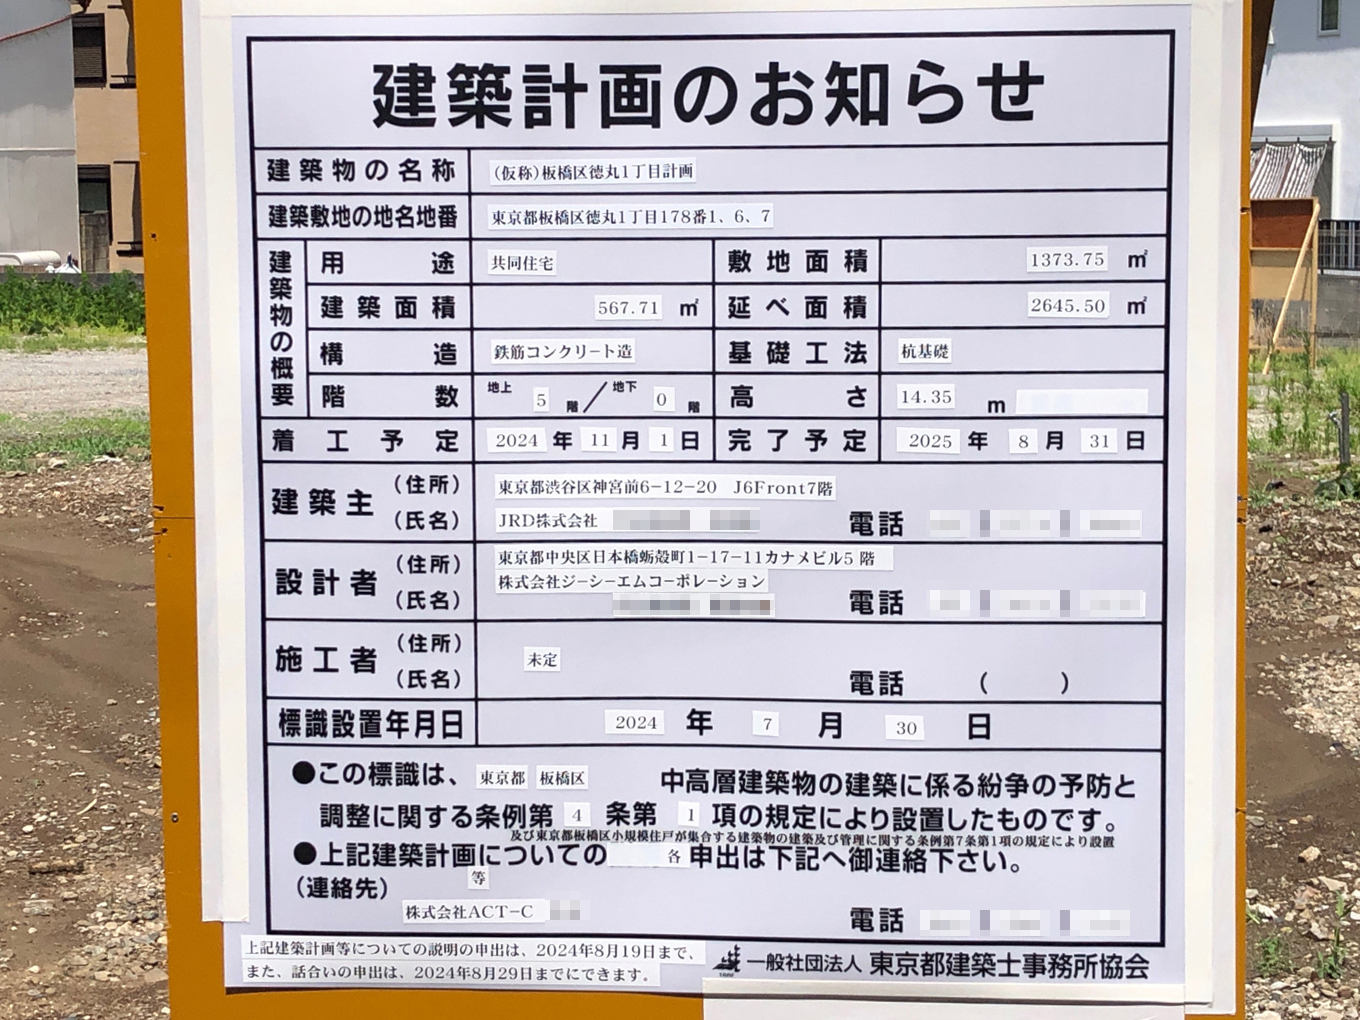 建築計画のお知らせ
建築物の名称 (仮称)板橋区徳丸1丁目計画
建築敷地の地名地番 東京都板橋区徳丸1丁目178番1、6、7
建築物の概要
用途 共同住宅 敷地面積 1373.75 ㎡
建築面積 567.71 ㎡ 延べ面積 2645.50 ㎡
構造 鉄筋コンクリート造 基礎工法 杭基礎
階数 地上 5 階 / 地下 0 階 高さ 14.35 m
着工予定 2024 年 11 月 1 日 完了予定 2025 年 8 月 31 日
建築主 (住所) 東京都渋谷区神宮前6-12-20 J6Front7階
(氏名) JRD株式会社 電話
設計者 (住所) 東京都中央区日本橋蛎殻町1-17-11カナメビル5階
(氏名) 株式会社ジーシーエムコーポレーション 電話
施工者 (住所) 未定
(氏名) 電話 ( )
標識設置年月日 2024 年 7 月 30 日
●この標識は、 東京都 板橋区 中高層建築物の建築に係る紛争の予防と
調整に関する条例第 4 条第 1 項の規定により設置したものです。
及び東京都板橋区小規模住戸が集合する建築物の建築及び管理に関する条例第7条第1項の規定により設置
●上記建築計画についての 各 申出は下記へ御連絡下さい。
等
(連絡先)
株式会社ACT-C 電話
上記建築計画等についての説明の申出は、2024年8月19日まで、
また、話合いの申出は、2024年8月29日までにできます。
一般社団法人 東京都建築士事務所協会